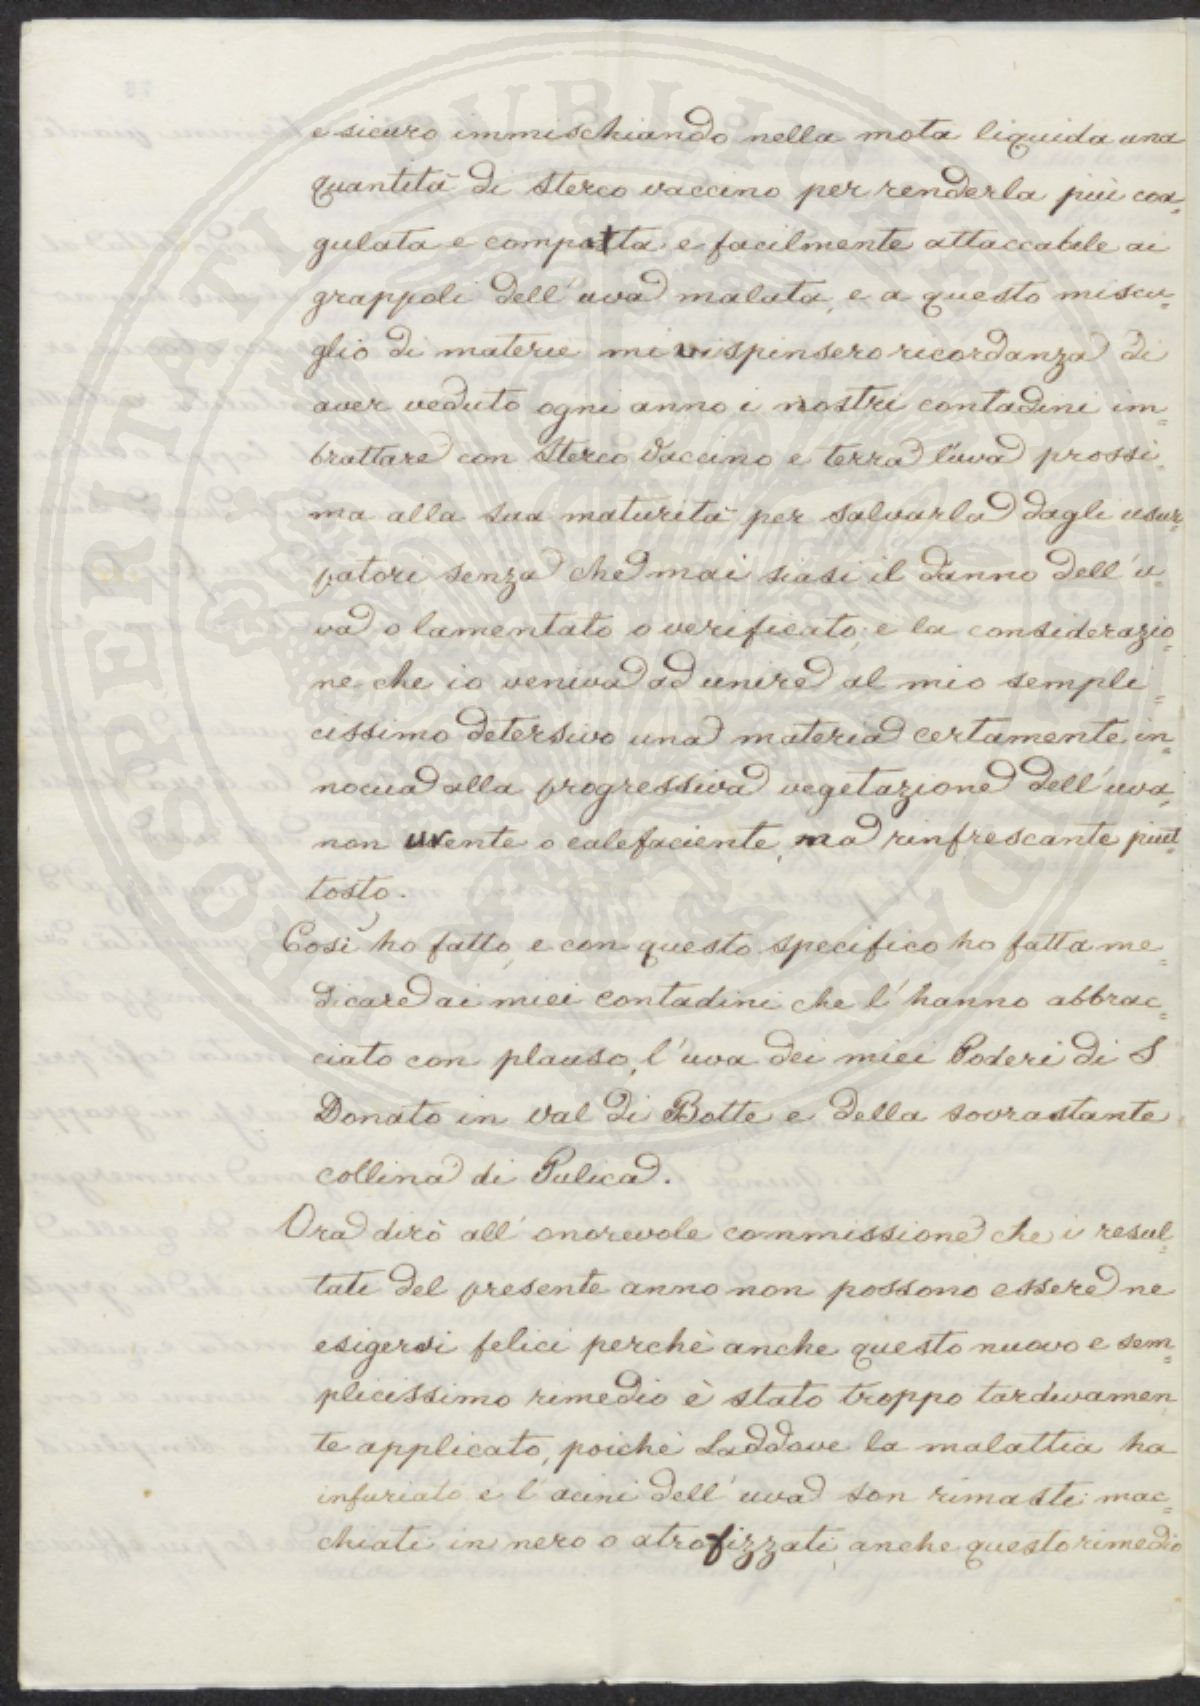 e sicuro immischiando nella mota liquida una
quantità di sterco vaccino per renderla più coa=
gulata e compatta e facilmente attaccabile ai
grappoli dell'uva malata, e a questo miscu=
glio di materie mi vi spinsero ricordanza di
aver veduto ogni anno i nostri contadini im=
brattare con sterco vaccino e terra l'uva prossi=
ma alla sua maturità per salvarla dagli usur=
patori, senza che mai siasi il danno dell'u=
va o lamentato o verificato; e la considerazio=
ne che io veniva ad unire al mio sempli=
cissimo detersivo una materia certamente in=
nocua alla progressiva vegetazione dell'uva,
non urente o calefaciente, ma rinfrescante piut=
tosto.
Così ho fatto, e con questo specifico ho fatta me=
dicare ai miei contadini che l'hanno abbrac=
ciato con plauso, l'uva dei miei Poderi di S
Donato in Val di Botte e della sovrastante
collina di Pulica.
Ora dirò all'onorevole commissione che i resul=
tati del presente anno non possono essere ne
esigersi felici perchè anche questo nuovo e sem=
plicissimo rimedio è stato troppo tardivamen
te applicato, poichè Laddove la malattia ha
infuriato e l'acini dell'uva son rimasti mac=
chiati in nero o atrofizzati, anche questo rimedio
PROSPERITATI PUBLICAE